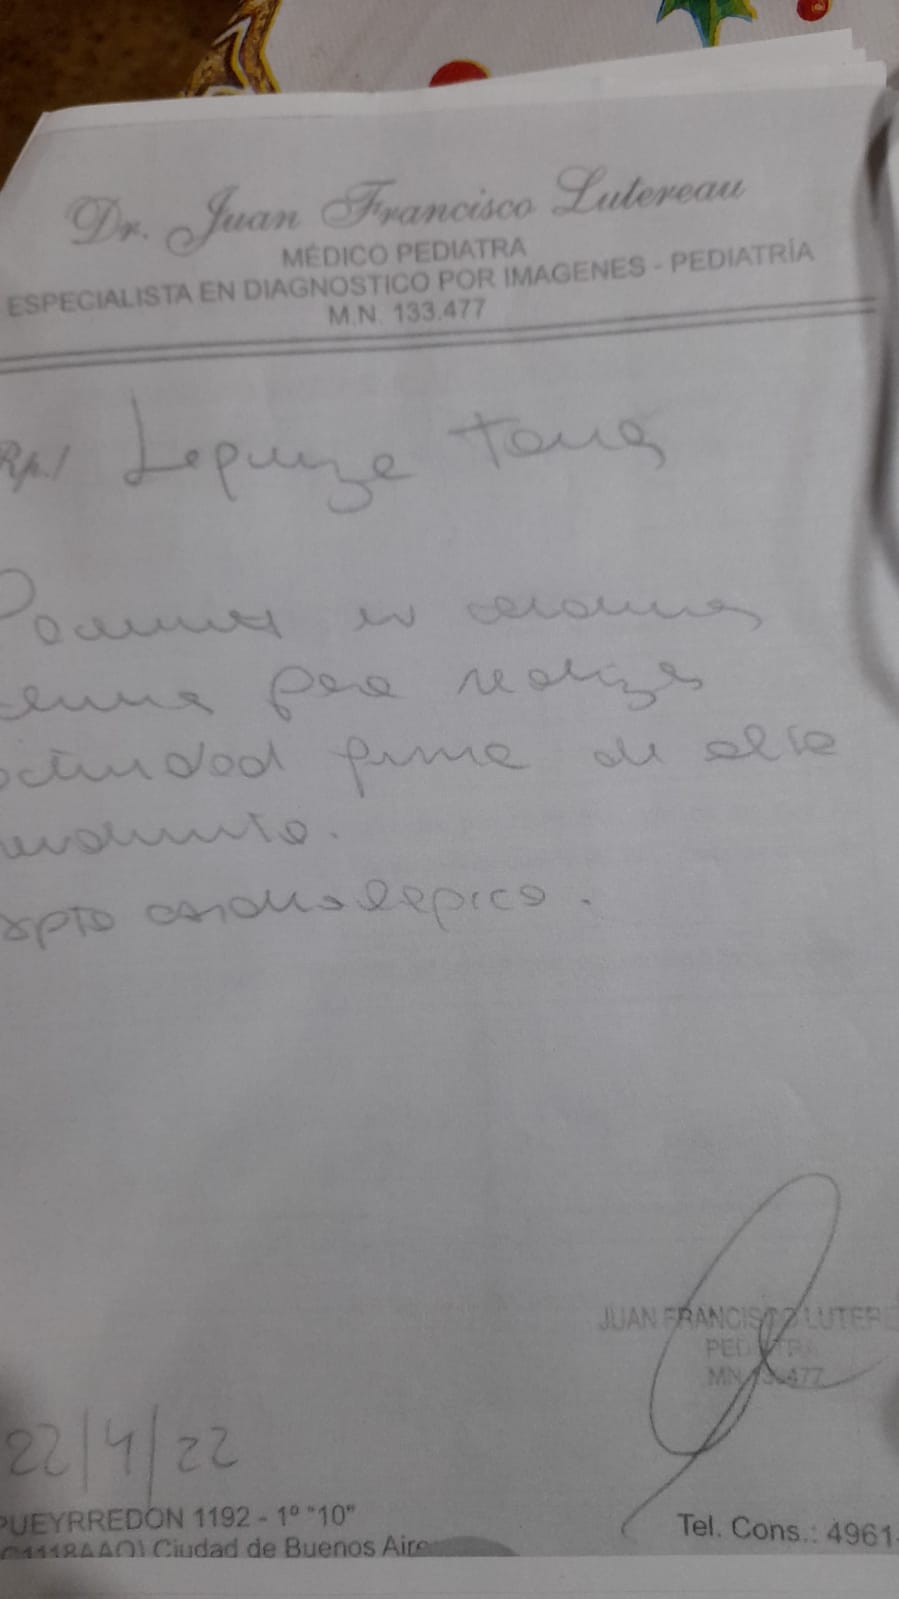 Dr. Juan Francisco Lutereau
MÉDICO PEDIATRA
ESPECIALISTA EN DIAGNOSTICO POR IMAGENES - PEDIATRÍA
M.N. 133.477
Rp./
en
para realizar
actividad física de alto
rendimiento.
apto cardiológico.
JUAN FRANCISCO LUTERE
PEDIATRA
MN 133.477
22/4/22
PUEYRREDON 1192 - 1º "10"
Tel. Cons.: 4961-
Ciudad de Buenos Aire